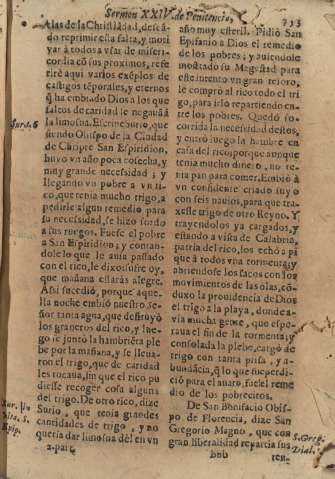 Sermon XXIV. de Penitencia, 753
dias de la Christiádad, desеã-
do reprimir esta falta, y mover
yar à todos a vsar de miseri-
cordia cõ sus proximos, refe-
riré aqui varios exẽplos de
castigos tẽporales, y eternos
q̃ ha embiado Dios a los que
faltos de caridad le negauã
la limosna. Escriue Surio, que
siendo Obispo de la Ciudad
de Chipre San Espiridion,
huvo vn año poca cosecha, y
muy grande necessidad; y
llegando vn pobre a vn ri-
co, que tenia mucho trigo, a
pedirle algun remedio para
su necessidad, se hizo sordo
a sus ruegos. Fuese el pobre
a San Espiridion; y contan-
dole lo que le auia passado
con el rico, le dixo: sufre oy,
que mañana estarás alegre.
Assi sucedió, porque aque-
lla noche embió nuestro Se-
ñor tanta agua, que destruyò
los graneros del rico, y lue-
go se juntó la hambrieta ple-
be por la mañana, y se lleua-
ron el trigo, que de caridad
les tocaua, sin que el rico pu-
diesse recoger cosa alguna
del trigo. De otro rico, dize
Surio, que tenia grandes
cantidades de trigo, y no
queria dar limosna dèl en vn
a. part.
Surio. 6
Sur. Vo
Sita. S.
Epip.
año muy esteril. Pidió San
Epifanio a Dios el remedio
de los pobres; y auiendole
mostrado su Magestad para
este intento vn gran tesoro,
le compró al rico todo el tri-
go, para irlo repartiendo en-
tre los pobres. Quedó so-
corrida la necessidad destos,
y entró luego la hambre en
casa del rico, porque aunque
tenia mucho dinero, no te-
nia pan para comer. Embió à
vn confidente criado suyo
con seis nauios, para que tra-
xesse trigo de otro Reyno. Y
trayendolos ya cargados, y
estando a vista de Calabria,
patria del rico, los echó a pi-
que à todos vna tormenta; y
abriendose los sacos con los
movimientos de las olas, cõ-
duxo la prouidencia de Dios
el trigo a la playa, donde a-
via mucha gente, que espe-
raua el fin de la tormenta; y
consolada la plebe, cargó de
trigo con tanta prisa, y a-
bundãcia, q̃ lo que su perdi-
ció para el auaro, fue el reme-
dio de los pobrecitos.
De San Bonifacio Obis-
po de Florencia, dize San
Gregorio Magno, que con
gran liberalidad repartia sus
Bbb ren-
S. Greg.
Dial.